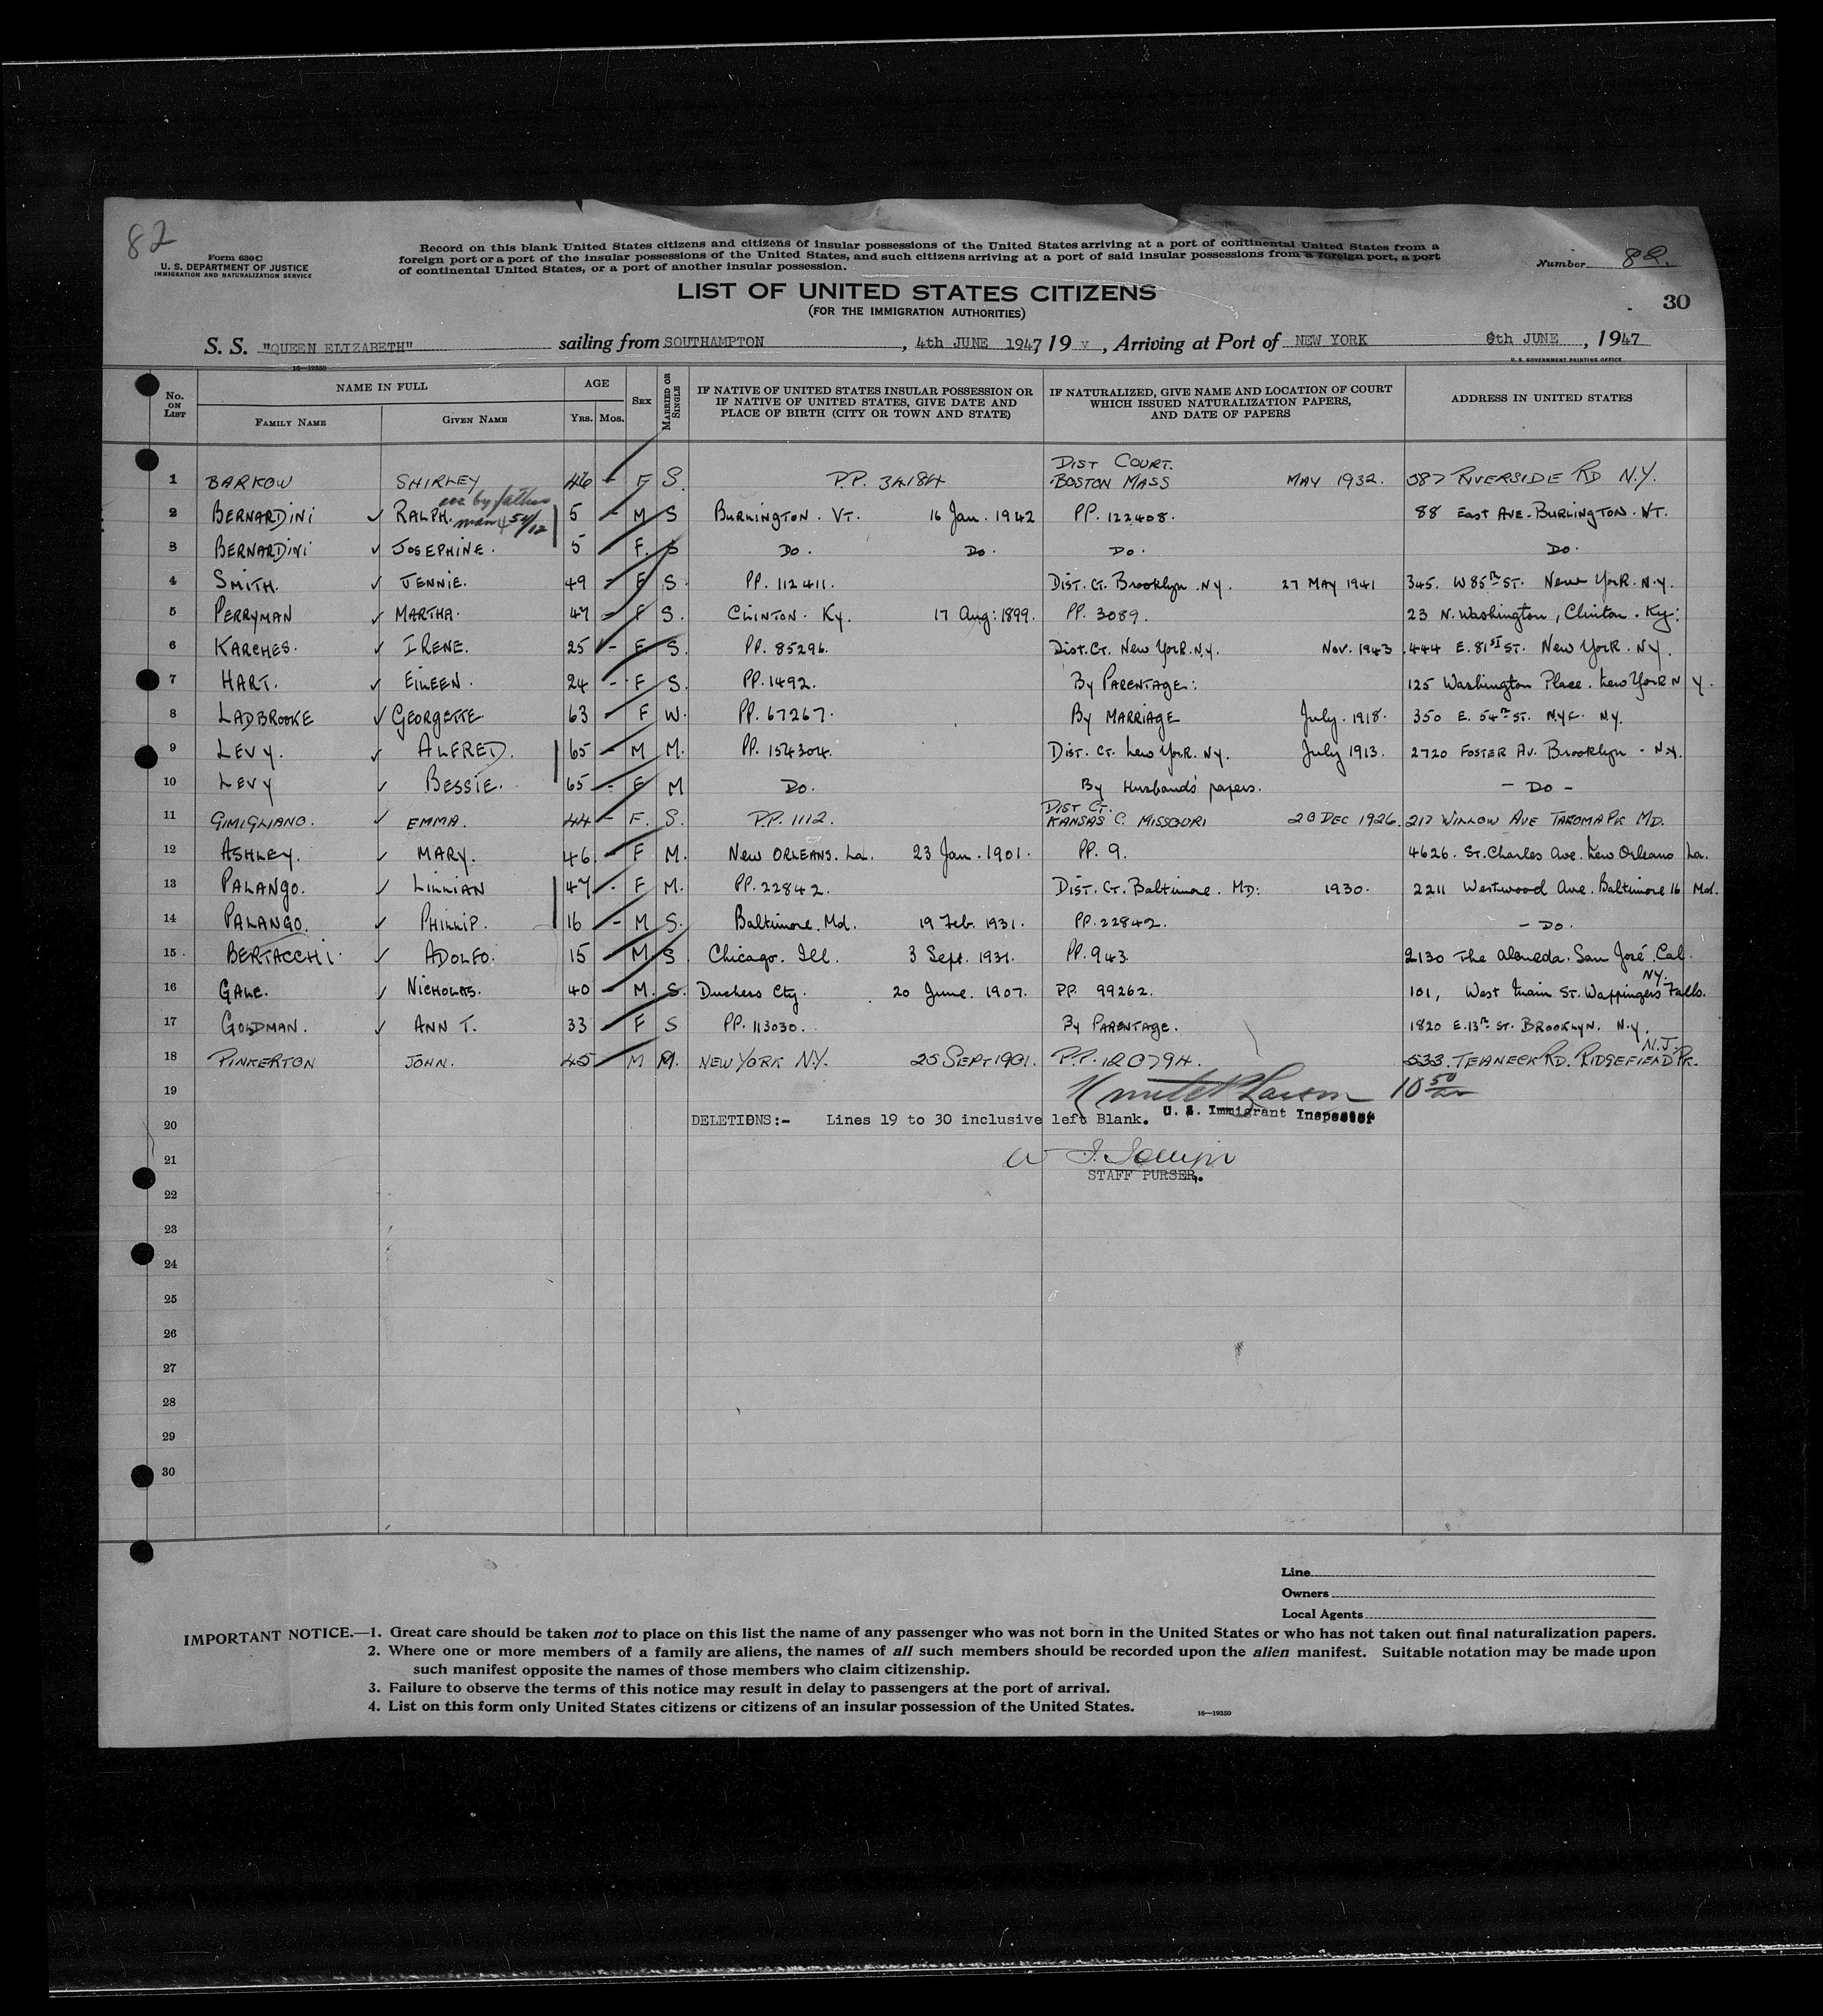 82
Form 630 C
U. S. DEPARTMENT OF JUSTICE
IMMIGRATION AND NATURALIZATION SERVICE
Record on this blank United States citizens and citizens of insular possessions of the United States arriving at a port of continental United States from a
foreign port or a port of the insular possessions of the United States, and such citizens arriving at a port of said insular possessions from a foreign port, a port
of continental United States, or a port of another insular possession.
Number 82.
LIST OF UNITED STATES CITIZENS
(FOR THE IMMIGRATION AUTHORITIES)
30
S. S. "QUEEN ELIZABETH" sailing from SOUTHAMPTON, 4th JUNE 1947 19, Arriving at Port of NEW YORK 9th JUNE, 1947
16—19350 U. S. GOVERNMENT PRINTING OFFICE
No. ON LIST NAME IN FULL FAMILY NAME GIVEN NAME AGE Yrs. Mos. SEX MARRIED OR SINGLE IF NATIVE OF UNITED STATES INSULAR POSSESSION OR IF NATIVE OF UNITED STATES, GIVE DATE AND PLACE OF BIRTH (CITY OR TOWN AND STATE) IF NATURALIZED, GIVE NAME AND LOCATION OF COURT WHICH ISSUED NATURALIZATION PAPERS, AND DATE OF PAPERS ADDRESS IN UNITED STATES
1 BARKOW SHIRLEY 46 - F S. P.P. 34184 DIST COURT. BOSTON MASS MAY 1932. 587 RIVERSIDE RD N.Y.
by father
2 BERNARDINI ✓ RALPH. 5 - M S BURLINGTON. VT. 16 Jan. 1942 PP. 122408. 88 East AVE. BURLINGTON. VT.
3 BERNARDINI ✓ JOSEPHINE. 5 - F. S DO. DO. DO. DO.
4 SMITH. ✓ JENNIE. 49 - F S. PP. 112411. DIST. CT. Brooklyn. NY. 27 MAY 1941 345. W 85th ST. New YORK. N.Y.
5 PERRYMAN ✓ MARTHA. 47 - F S. CLINTON. Ky. 17 Aug: 1899. PP. 3089. 23 N. Washington, Clinton. Ky:
6 KARCHES. ✓ IRENE. 25 - F S. PP. 85296. Dist. CT. New York. N.Y. Nov. 1943 444 E. 81ST ST. New York. NY.
7 HART. ✓ EILEEN. 24 - F S. PP. 1492. By PARENTAGE: 125 Washington Place. New York N Y.
8 LADBROOKE ✓ GEORGETTE. 63 - F W. PP. 67267. By MARRIAGE July. 1918. 350 E. 54th ST. NYC. N.Y.
9 LEVY. ✓ ALFRED. 65 - M M. PP. 154304. DIST. CT. New York. NY. July 1913. 2720 FOSTER AV. Brooklyn - N.Y.
10 LEVY ✓ BESSIE. 65 - F M DO. By Husband's papers. - DO -
11 GIMIGLIANO. ✓ EMMA. 44 - F. S. P.P. 1112. DIST CT. KANSAS C. MISSOURI 20 DEC 1926. 217 WILLOW AVE TAKOMA PK MD.
12 ASHLEY. ✓ MARY. 46 - F M. New ORLEANS. La. 23 Jan. 1901. PP. 9. 4626. St. Charles Ave. New Orleans La.
13 PALANGO. ✓ LILLIAN 47 - F M. PP. 22842. DIST. CT. Baltimore. MD: 1930. 2211 Westwood Ave. Baltimore 16 Md.
14 PALANGO. ✓ PHILLIP. 16 - M S. Baltimore. Md. 19 Feb. 1931. PP. 22842. - DO.
15 BERTACCHI. ✓ ADOLFO. 15 - M. S Chicago. Ill. 3 Sept. 1931. PP. 943. 2130 The Alameda. San José. Cal.
16 GALE. ✓ NICHOLAS. 40 - M. S. Duchess Cty. 20 June. 1907. PP. 99262. 101, West Main ST. Wappingers Falls. NY.
17 GOLDMAN. ✓ ANN T. 33 - F S PP. 113030. By PARENTAGE. 1820 E. 13th ST. BROOKLYN. N.Y.
18 PINKERTON JOHN. 45 M M. NEW YORK N.Y. 25 SEPT 1901. P.P. 120794. 533. TEANECK RD. RIDGEFIELD PK. N.J.
19
U. S. Immigrant Inspector
20 DELETIONS:- Lines 19 to 30 inclusive left Blank.
21
STAFF PURSER.
22
23
24
25
26
27
28
29
30
Line
Owners
Local Agents
IMPORTANT NOTICE.—1. Great care should be taken not to place on this list the name of any passenger who was not born in the United States or who has not taken out final naturalization papers.
2. Where one or more members of a family are aliens, the names of all such members should be recorded upon the alien manifest. Suitable notation may be made upon
such manifest opposite the names of those members who claim citizenship.
3. Failure to observe the terms of this notice may result in delay to passengers at the port of arrival.
4. List on this form only United States citizens or citizens of an insular possession of the United States.
16—19350